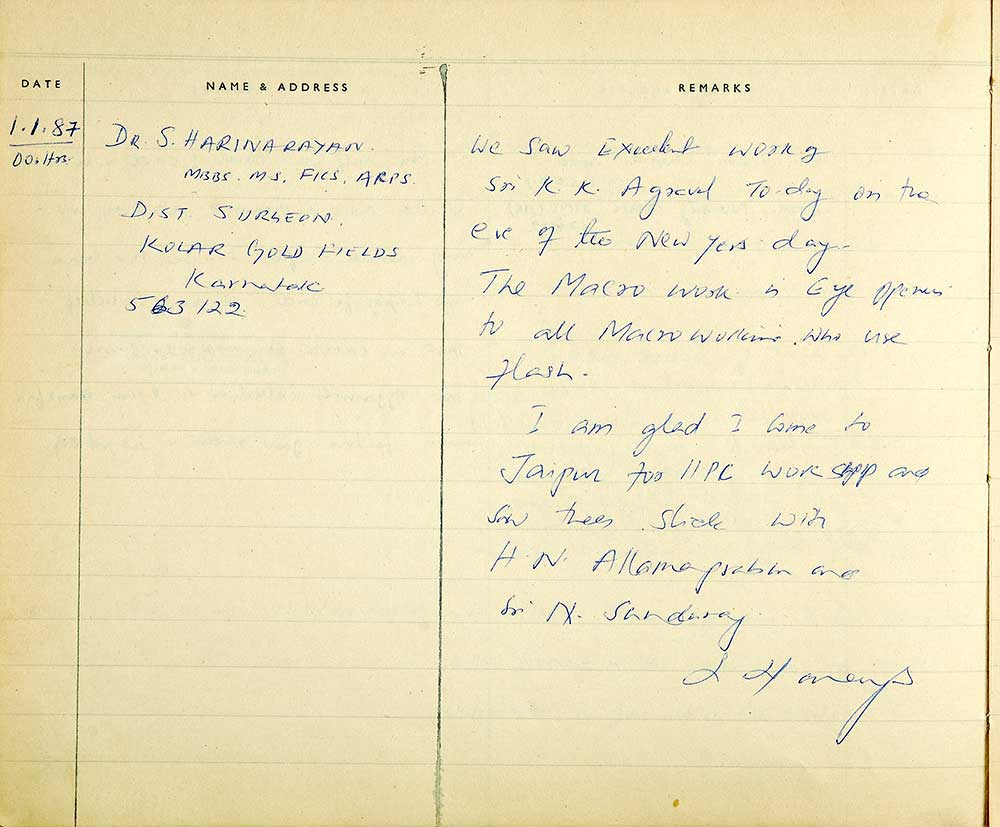 DATE
NAME & ADDRESS
REMARKS
1.1.87
00.Hrs.
DR. S. HARINARAYAN.
MBBS. MS, FICS, ARPS.
DIST. SURGEON.
KOLAR GOLD FIELDS
Karnatak
563 122
We saw Excellent work of
Sri K K. Agraval To-day on the
eve of the New Yers day.
The Macro work is Eye opener
to all Macro workers who use
flash.
I am glad I come to
Jaipur for IIPC work shop and
saw thees slide with
H. N. Allamaprabhu and
Sri N. Sundaraj.